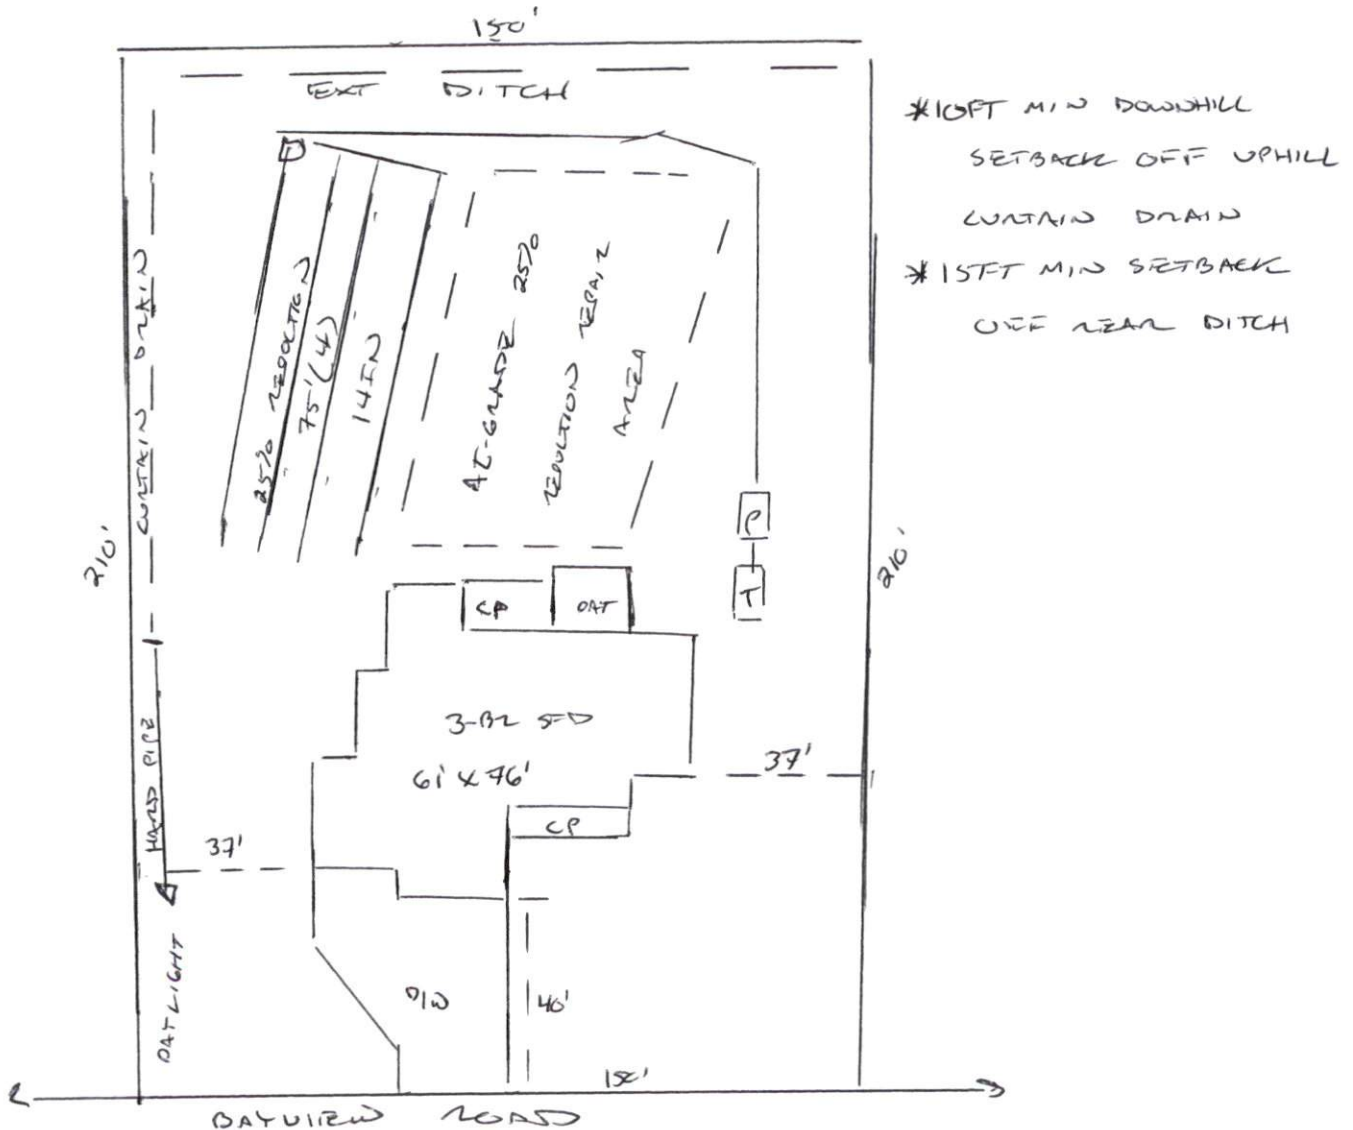 150'
EXT DITCH
*10FT MIN DOWNHILL
SETBACK OFF UPHILL
CURTAIN DRAIN
*15FT MIN SETBACK
OFF REAR DITCH
CURTAIN DRAIN
25% REDUCTION
75' (4)
14IN
AT-GRADE 25%
REDUCTION REPAIR
AREA
210'
210'
P
T
CP
OAT
3-BR SFD
61' X 76'
37'
CP
HARD PIPE
37'
DAYLIGHT
D/W
40'
150'
BAYVIEW ROAD